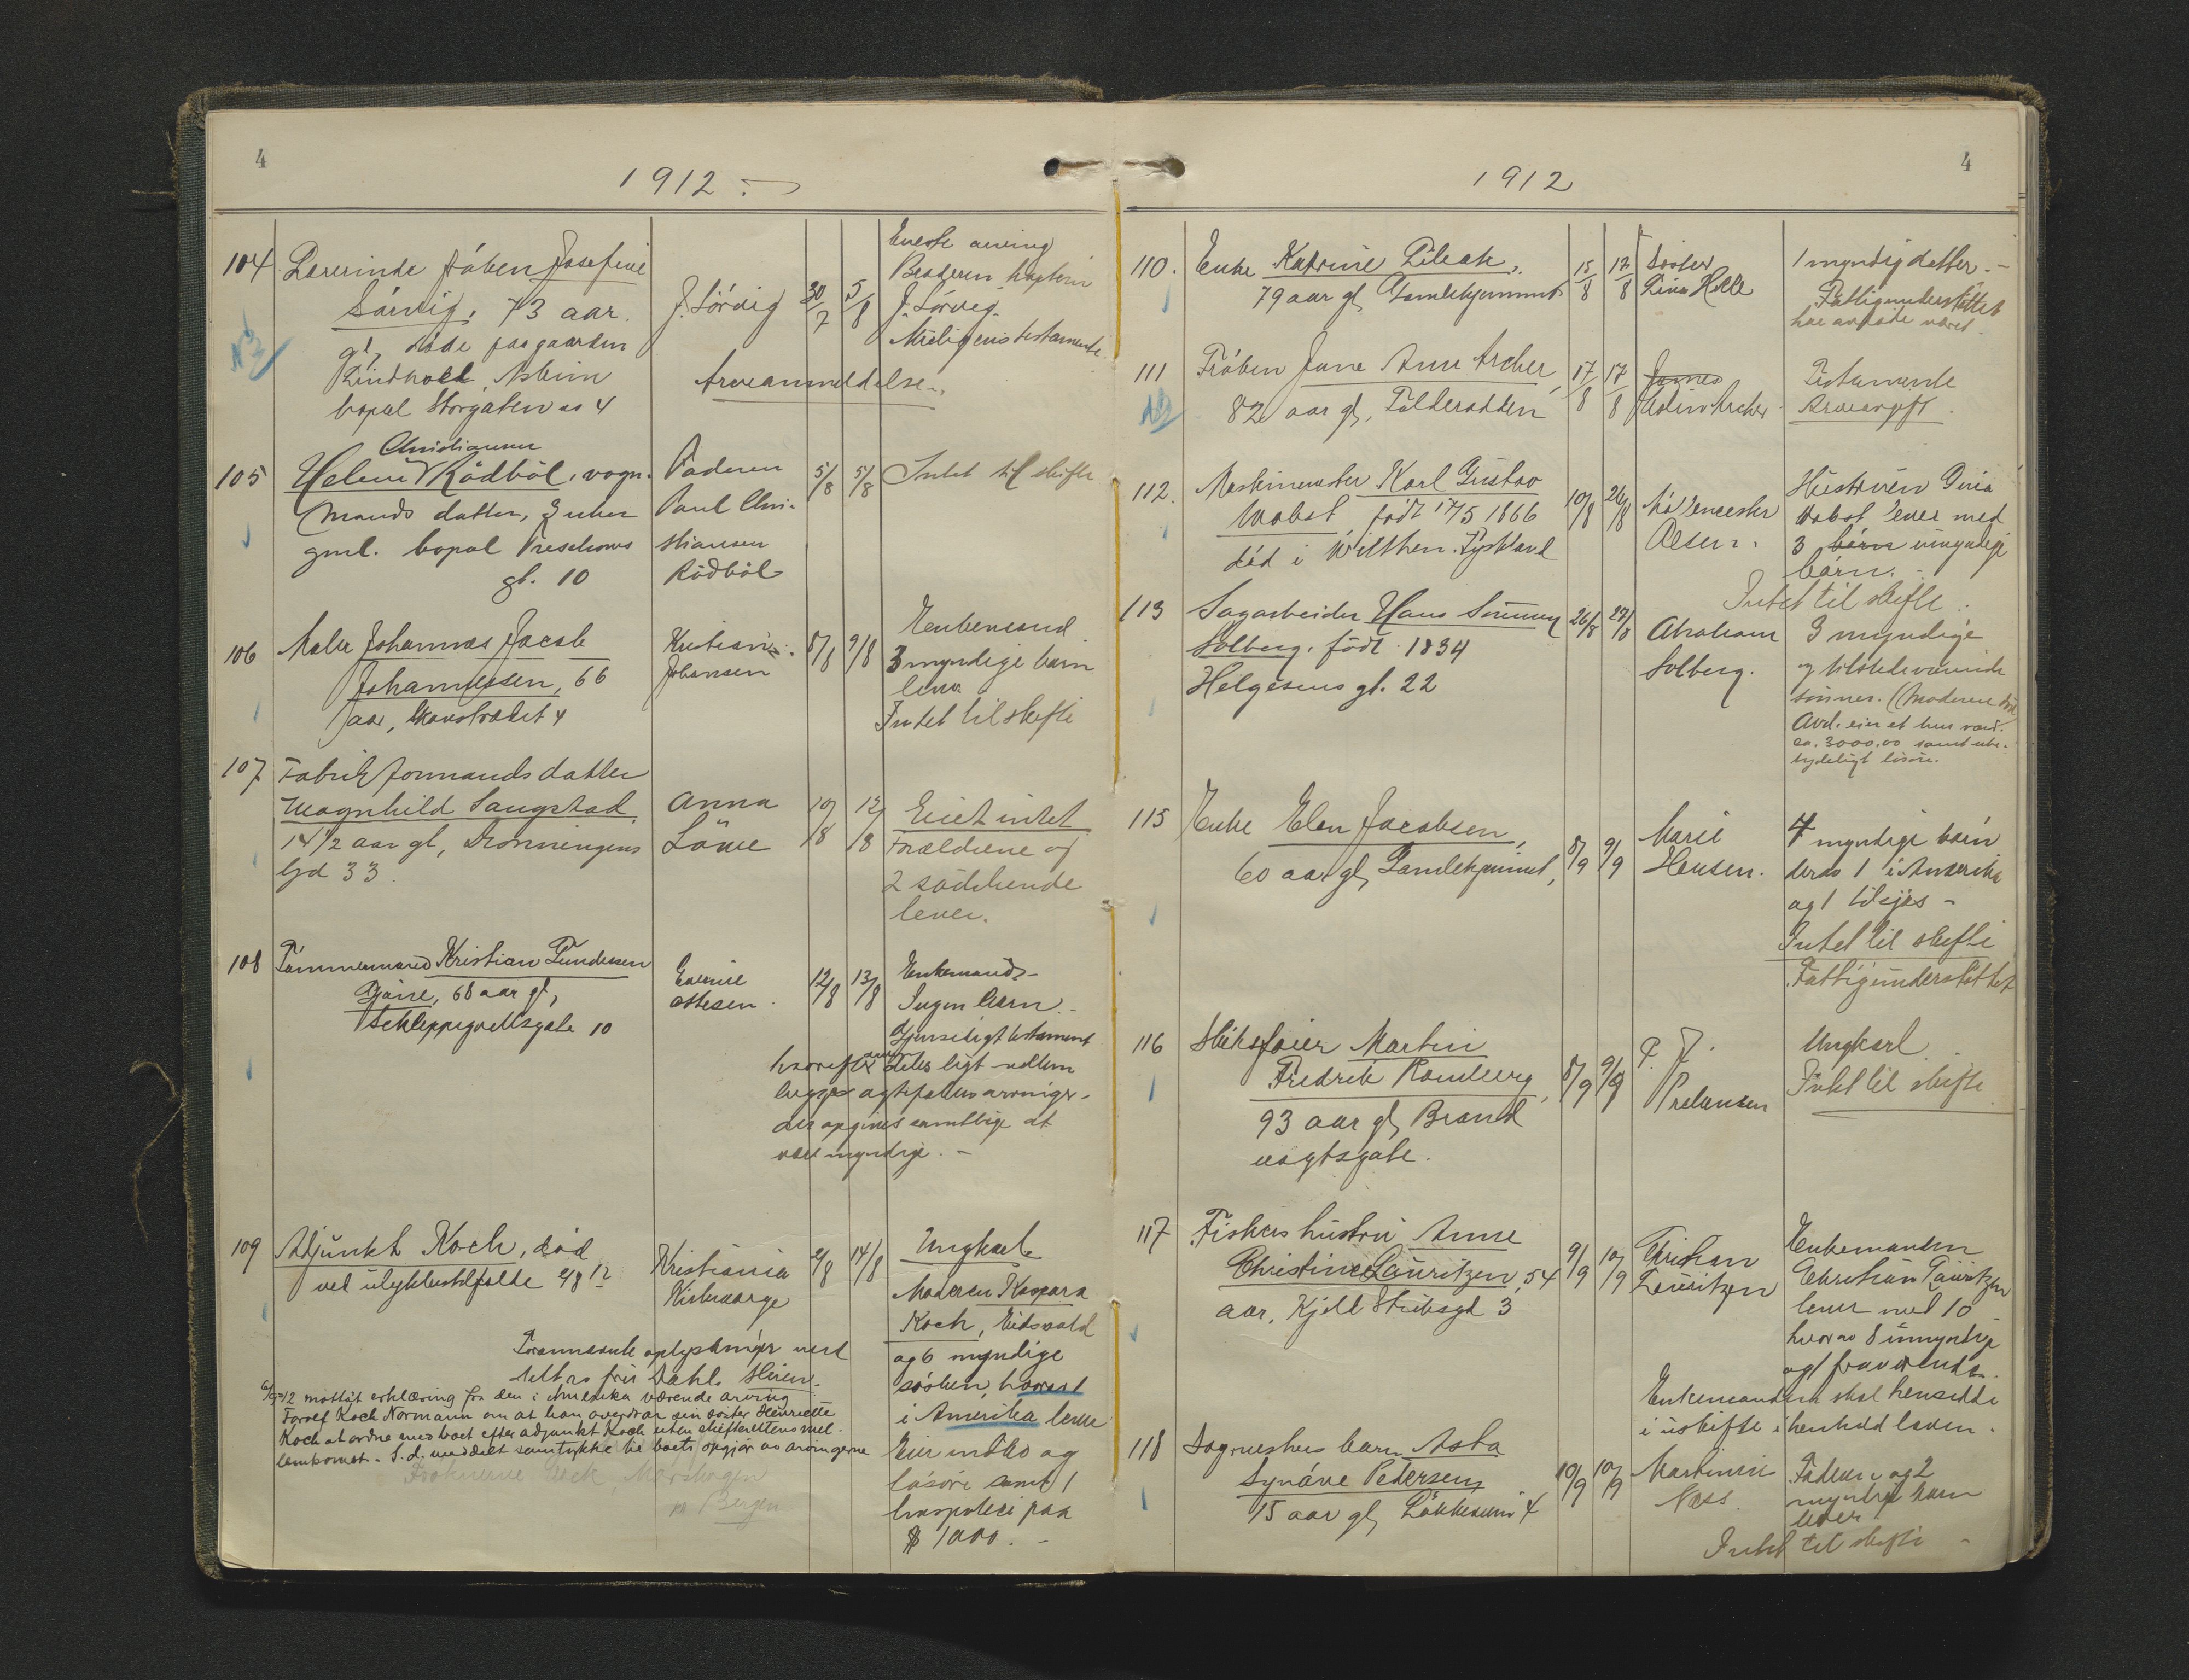 4
1912
104. Lærerinde frøken Josefine
Sørvig, 73 aar
gl, døde paa gaarden
Lindholt, Askim
bopæl Storgaten no 4
J. Sørvig
30/7 5/8
Eneste arving
Broderen kaptein
J. Sørvig.
Muligens testamente.
Arveanmeldelse.
NB
105 Christiansen
Helene Rødbøl, vogn-
mands datter, 3 uker
gml. bopæl Treschows
gt. 10
Faderen
Paul Chri-
stiansen
Rødbøl
5/8 5/8
Intet til skifte
106 Maler Johannes Jacob
Johannessen, 66
aar, Skanstrædet 4
Kristian
Johansen
8/8 9/8
Enkemand
3 myndige barn
lever
Intet til skifte
107 Fabrikformands datter
Magnhild Laugstad,
14 1/2 aar gl, Dronningens
gd 33.
Anna
Löwe
10/8 12/8
Eiet intet
Forældrene og
2 sødskende
lever.
108 Tømmermand Kristian Gundersen
68 aar gl,
Schleppegrellsgate 10
Ottesen
12/8 13/8
Enkemand-
Ingen barn.-
Gjensidigt testament
hvorefter arven deles ligt mellem
begge ægtefællers arvinger-
der opgives samtlige at
være myndige.-
109 Adjunkt Koch, død
ved ulykkestilfælde 4/8 12
Kristiania
4/8 14/8
Ungkarl
Moderen Kaspara
Koch, Eidsvold
og 6 myndige
søsken, hvorav 1
i Amerika lever
Eier indbo og
løsøre samt 1
livspolice paa
$ 1000.-
Foranstaaende oplysninger ved
fru Dahl, Skien.
12 mottat erklæring fra den i Amerika værende arving
Koch Normann om at han overdrar sin søster Henriette
Koch at ordne med boet efter adjunkt Koch uten skifterettens mel-
lemkomst.- S.d. meddelt samtykke til boets opgjør av arvingerne
Bergen
4
1912
110. Enke Katrine Pileak,
79 aar gl, Gamlehjemmet
15/8 17/8
Søster
1 myndig datter.-
Fattigunderstøttet
har avdøde været.
111 Frøken Jane Anne Archer,
82 aar gl, Tollerodden
17/8 17/8
James
Colin Archer
Testamente
Arveavgift
NB
112. Maskinmester Karl Gustav
Wabst født 17/5 1866
død i Wilthen. Tyskland
10/8 26/8
Olsen.
Hustruen
Wabst lever med
3 barn umyndige
barn.
Intet til skifte.
113 Sagarbeider Hans
Solberg, født 1834
Helgesens gt. 22
26/8 27/8
Abraham
Solberg.
3 myndige
og tilstedeværende
sønner. (Moderen død
Avd. eier et hus værd.
ca. 3000,00 samt ube-
tydeligt løsøre.
115 Enke Elen Jacobsen,
60 aar gl, Gamlehjemmet,
8/9 9/9
Marie
Hansen.
4 myndige barn
derav 1 i Amerika
og 1 tilsjøs-
Intet til skifte
Fattigunderstøttet
116 Martin
Fredrik Romberg,
93 aar gl, Brand
vagtsgate.
8/9 9/9
P. J.
Ungkarl
Intet til skifte
117 Fiskers hustru Anne
Christine Lauritzen, 54
aar, Kjell Stubsgd 3
9/9 10/9
Christian
Lauritzen
Enkemanden
Christian Lauritzen
lever med 10
hvorav 8 umyndige
og 1 fraværende.
Enkemanden skal hensidde
i uskifte i henhold loven.
118 barn Asta
Synøve Pedersen,
15 aar gl, 4
10/9 10/9
Næss.
Faderen og 2
myndige barn
lever
Intet til skifte -